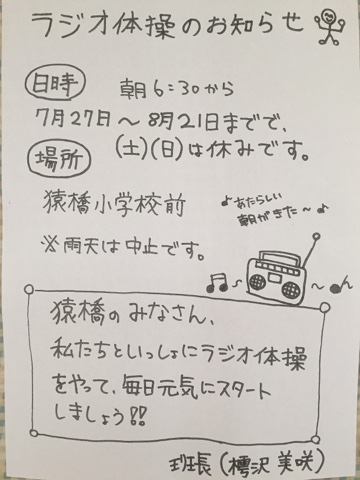 ラジオ体操のお知らせ
日時 朝6:30から
7月27日～8月21日までで、
(土)(日)は休みです。
場所
猿橋小学校前
♪あたらしい
朝がきた～♪
※雨天は中止です。
猿橋のみなさん、
私たちといっしょにラジオ体操
をやって、毎日元気にスタート
しましょう!!
班長(樗沢 美咲)